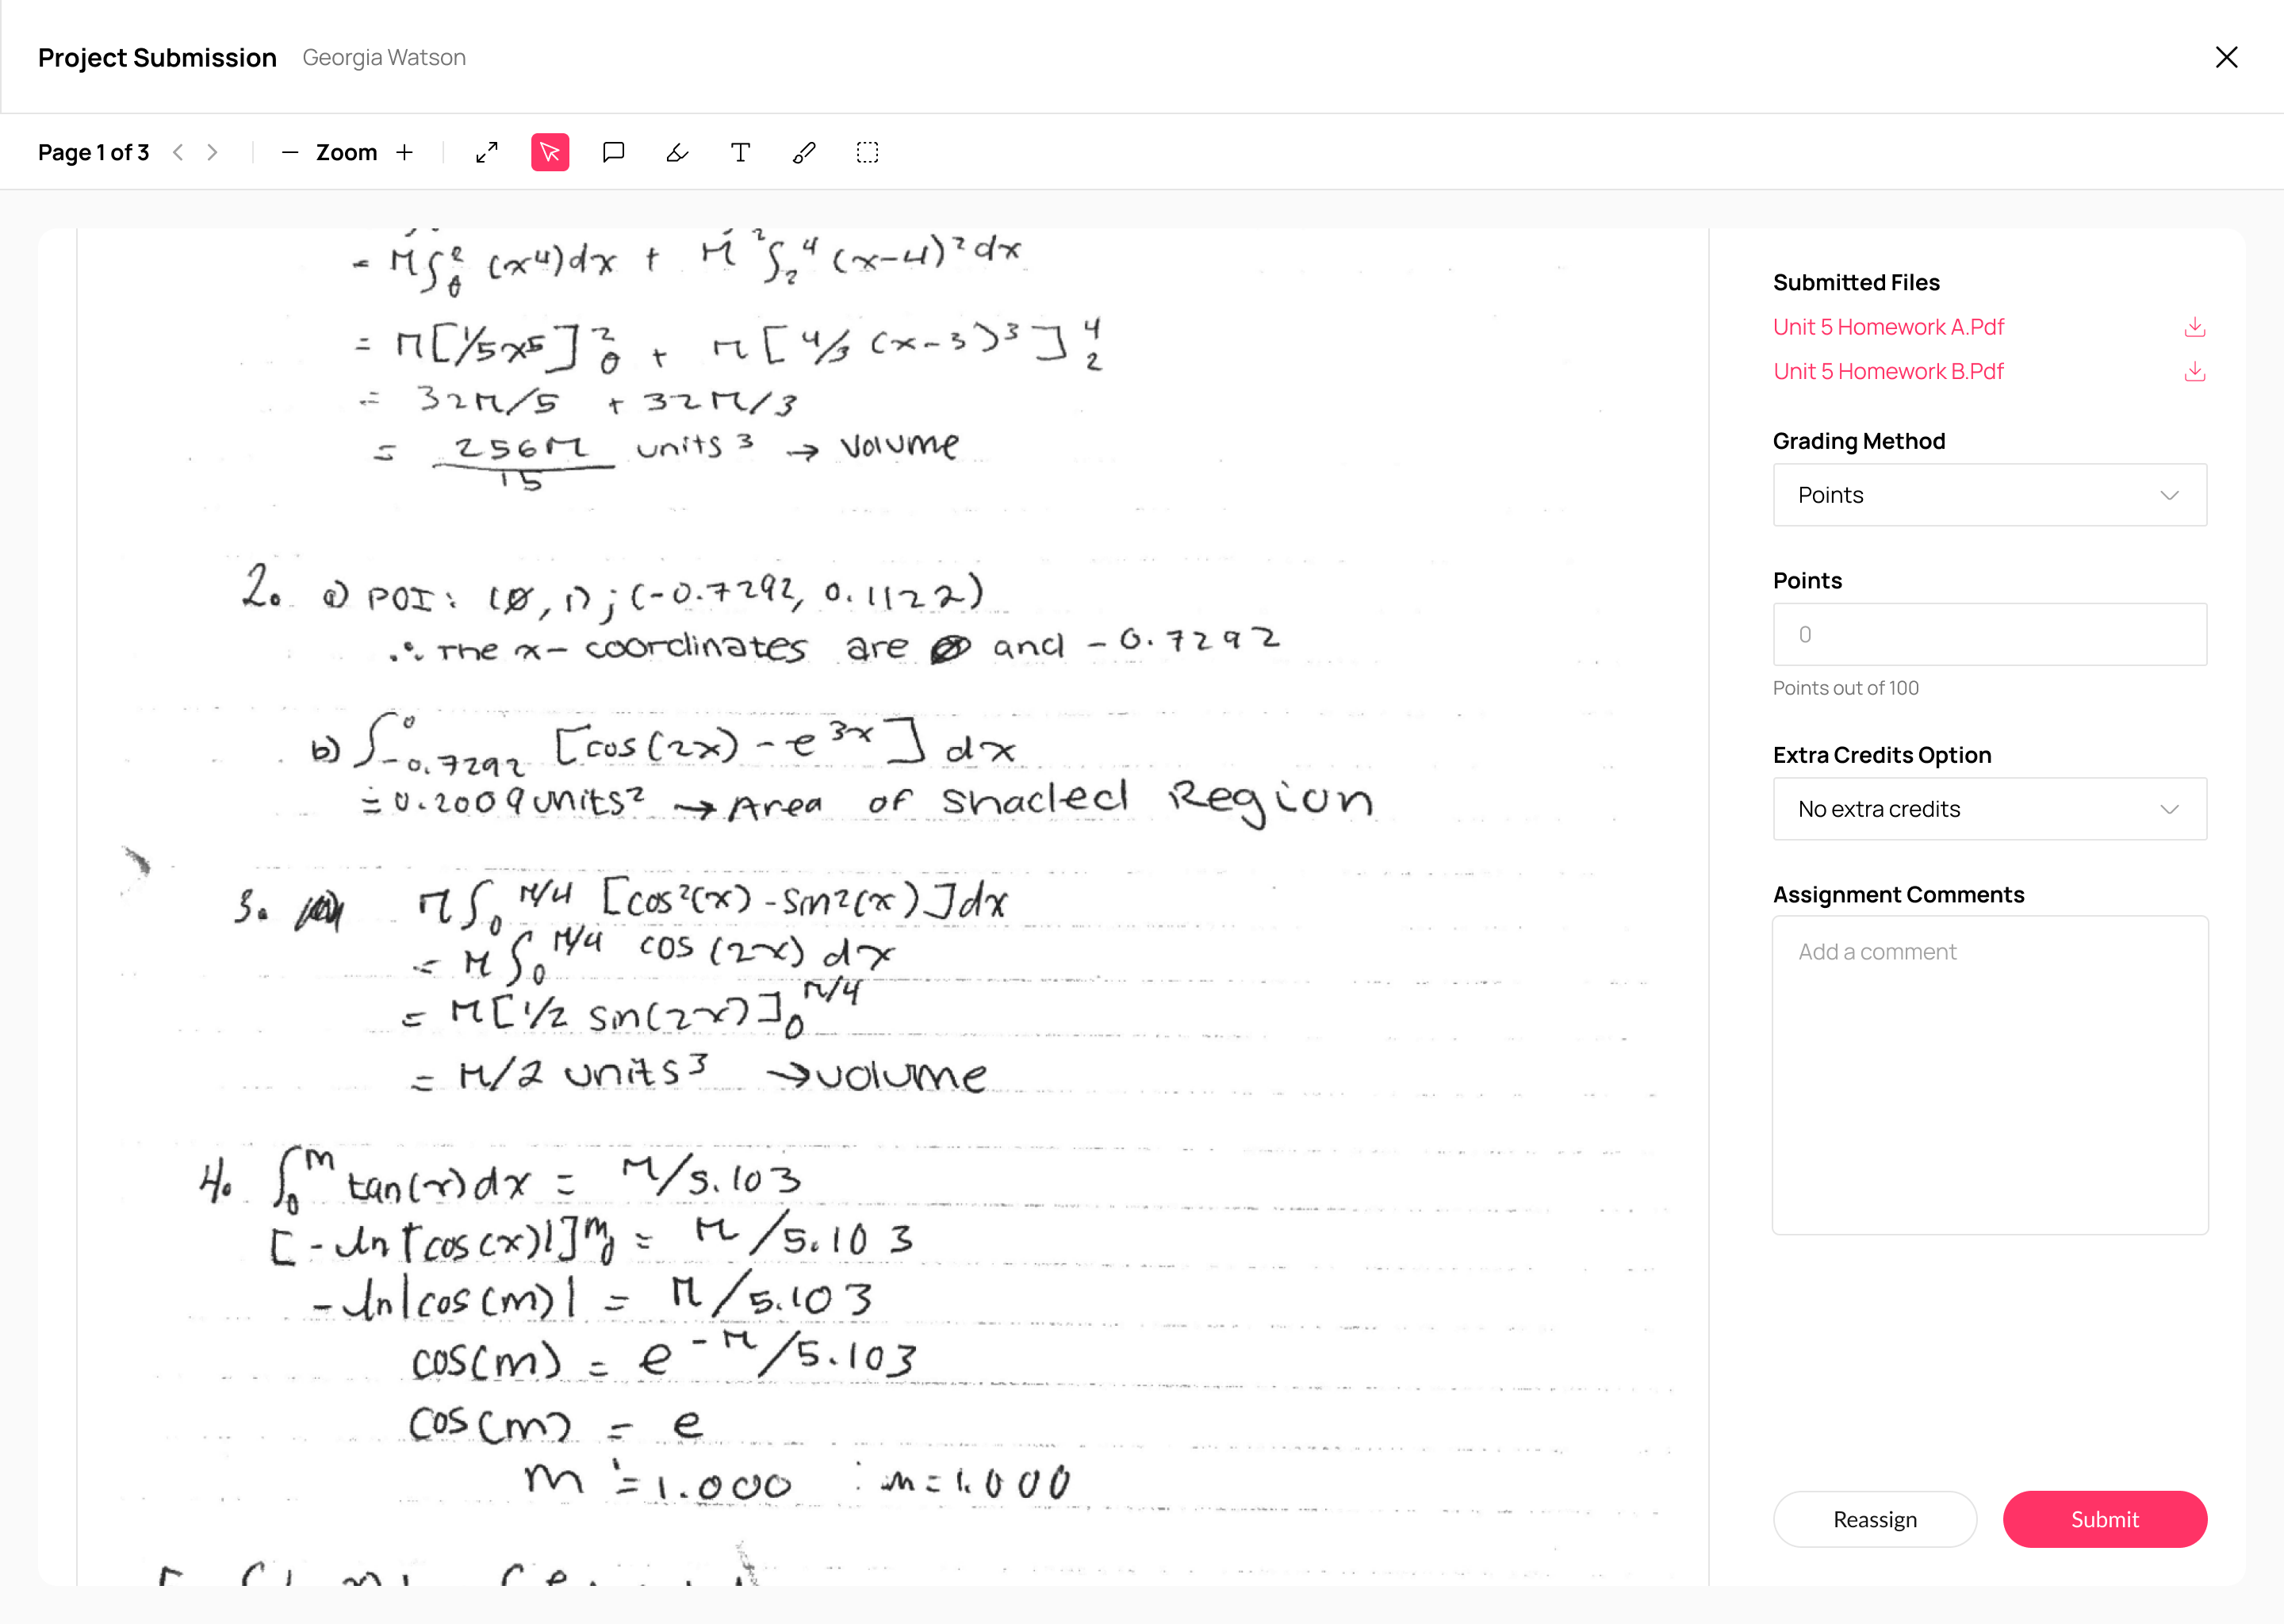 Project Submission Georgia Watson
Page 1 of 3 Zoom
= π∫₀² (x⁴)dx + π ²∫₂⁴ (x-4)² dx
= π[1/5x⁵]₀² + π[4/3 (x-3)³]₂⁴
= 32π/5 + 32π/3
= 256π/15 units³ → volume
2. a) POI: (0, 1); (-0.7292, 0.1122)
∴ The x-coordinates are 0 and -0.7292
b) ∫₋₀.₇₂₉₂⁰ [cos(2x) - e³ˣ] dx
= 0.2009 units² → Area of Shaded Region
3. π∫₀^π/4 [cos²(x) - sin²(x)]dx
= π∫₀^π/4 cos(2x) dx
= π[1/2 sin(2x)]₀^π/4
= π/2 units³ → volume
4. ∫₀^m tan(x)dx = π/5.103
[-ln|cos(x)|]₀^m = π/5.103
-ln|cos(m)| = π/5.103
cos(m) = e^-π/5.103
cos(m) = e
m = 1.000 : m = 1.000
Submitted Files
Unit 5 Homework A.Pdf
Unit 5 Homework B.Pdf
Grading Method
Points
Points
0
Points out of 100
Extra Credits Option
No extra credits
Assignment Comments
Add a comment
Reassign Submit